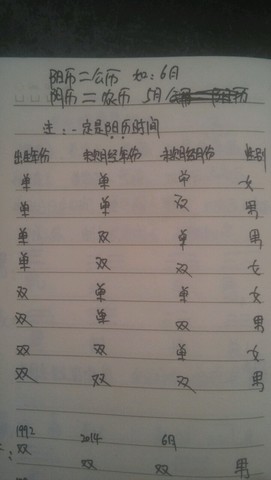 阳历=公历 如:6月
阴历=农历 5月
注:一定是阴历时间
出生年份 末次月经年份 末次月经月份 性别
单 单 单 女
单 单 双 男
单 双 单 男
单 双 双 女
双 单 单 女
双 单 双 男
双 双 单 女
双 双 双 男
1992 2014 6月
双 双 双 男